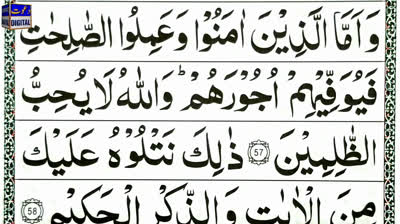 DIGITAL
وَاَمَّا الَّذِيْنَ اٰمَنُوْا وَعَمِلُوا الصّٰلِحٰتِ
فَيُوَفِّيْهِمْ اُجُوْرَهُمْ ؕ وَاللّٰهُ لَا يُحِبُّ
الظّٰلِمِيْنَ 57 ذٰلِكَ نَتْلُوْهُ عَلَيْكَ
مِنَ الْاٰيٰتِ وَالذِّكْرِ الْحَكِيْمِ 58